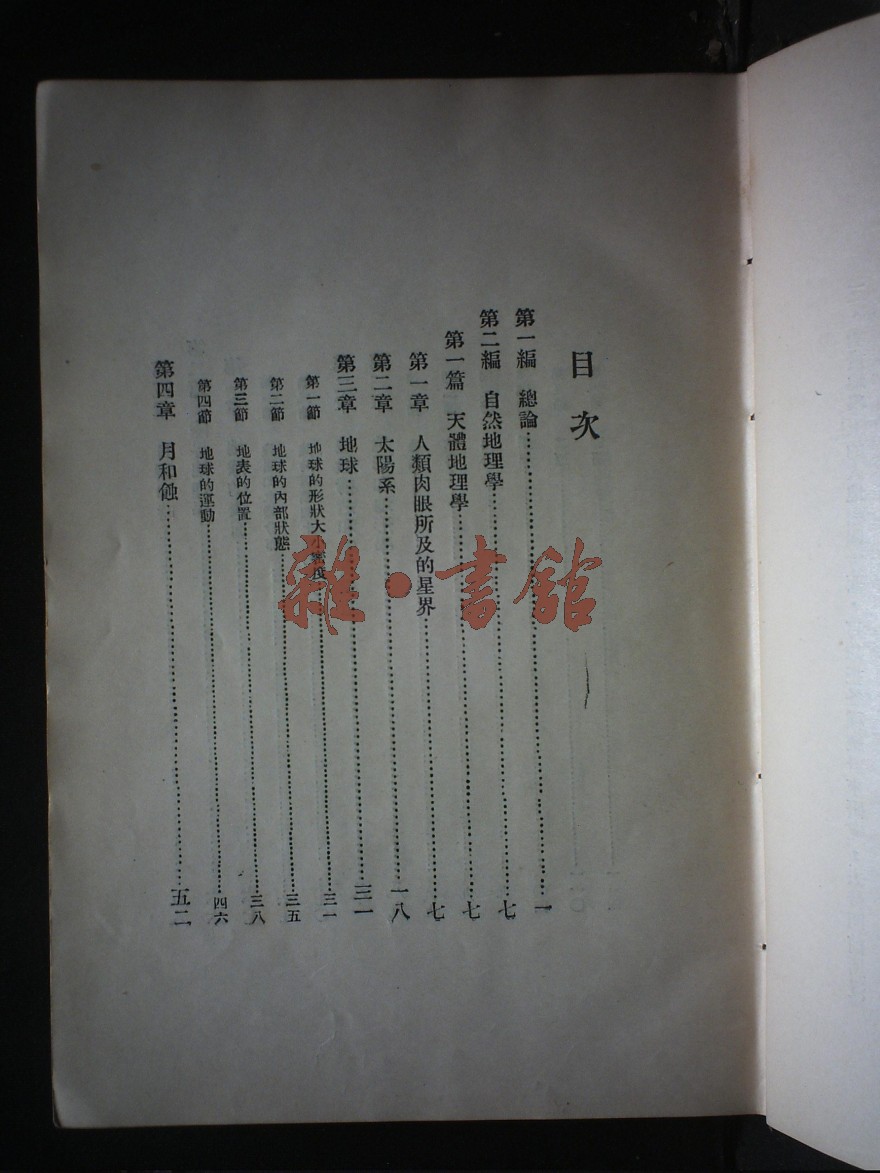 目次
第一編 總論……一
第二編 自然地理學……七
第一篇 天體地理學……七
第一章 人類肉眼所及的星界……七
第二章 太陽系……一八
第三章 地球……三一
第一節 地球的形狀大小密度……三一
第二節 地球的內部狀態……三五
第三節 地表的位置……三八
第四節 地球的運動……四六
第四章 月和蝕……五二
雜·書館